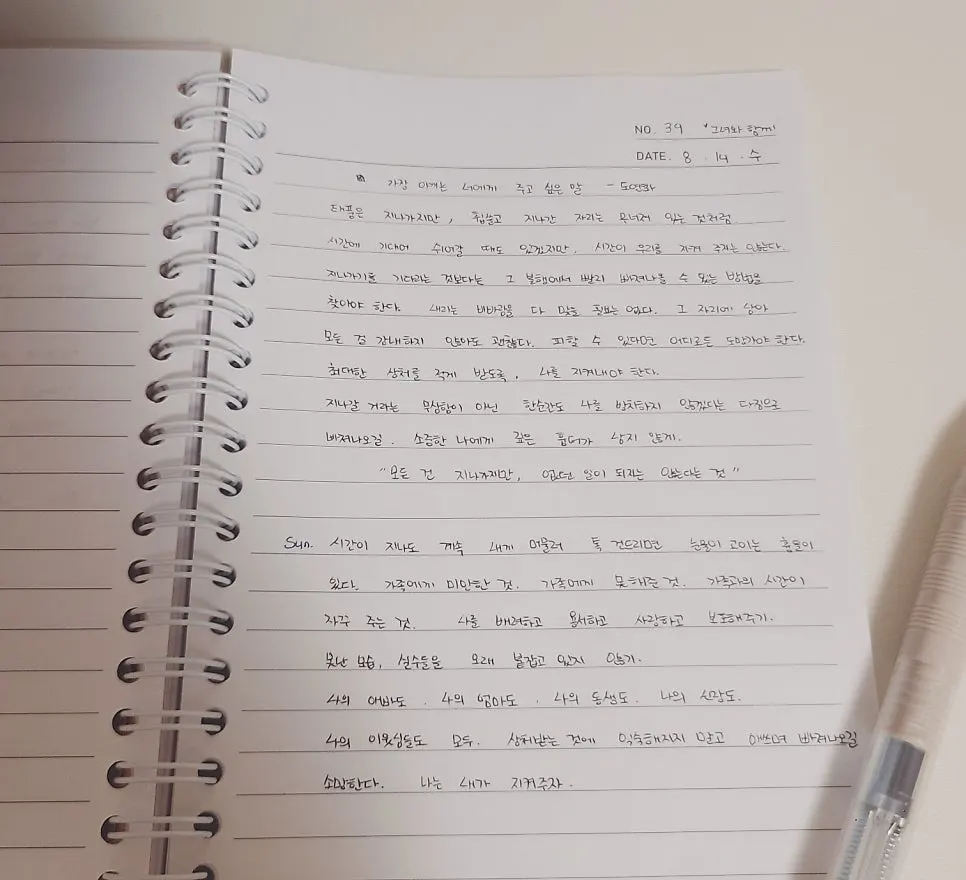 NO. 39 '그녀와 함께'
DATE. 8 . 14 . 수
가장 아끼는 너에게 주고 싶은 말 - 도연화
태풍은 지나가지만, 휩쓸고 지나간 자리는 무너져 있는 것처럼
시간에 기대어 쉬어갈 때도 있겠지만, 시간이 우리를 지켜 주지는 않는다.
지나가기를 기다리는 것보다는 그 불행에서 빨리 빠져나올 수 있는 방법을
찾아야 한다. 내리는 비바람을 다 맞을 필요는 없다. 그 자리에 남아
모든 걸 감내하지 않아도 괜찮다. 피할 수 있다면 어디로든 도망가야 한다.
최대한 상처를 적게 받도록, 나를 지켜내야 한다.
지나갈 거라는 무상함이 아닌 한순간도 나를 방치하지 않겠다는 다짐으로
빠져나오길. 소중한 나에게 깊은 흉터가 남지 않게.
"모든 건 지나가지만, 없던 일이 되지는 않는다는 것"
Sun. 시간이 지나도 계속 내게 머물러 톡 건드리면 눈물이 고이는 흠들이
있다. 가족에게 미안한 것. 가족에게 못해준 것. 가족과의 시간이
자꾸 주는 것. 나를 배려하고 용서하고 사랑하고 보호해주기.
못난 모습, 실수들을 오래 붙잡고 있지 않기.
나의 아빠도. 나의 엄마도. 나의 동생도. 나의 신랑도.
나의 이웃님들도 모두. 상처받는 것에 익숙해지지 말고 애쓰며 빠져나오길
소망한다. 나는 내가 지켜주자.